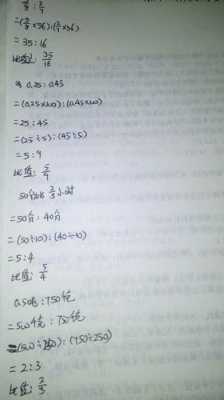 =35:16
比值: 35/16
0.25:0.45
=(0.25×100):(0.45×100)
=25:45
=(25÷5):(45÷5)
=5:9
比值: 5/9
50分:2/3小时
=50分:40分
=(50÷10):(40÷10)
=5:4
比值: 5/4
:750克
=500克:750克
=(500÷250):(750÷250)
=2:3
比值: 2/3